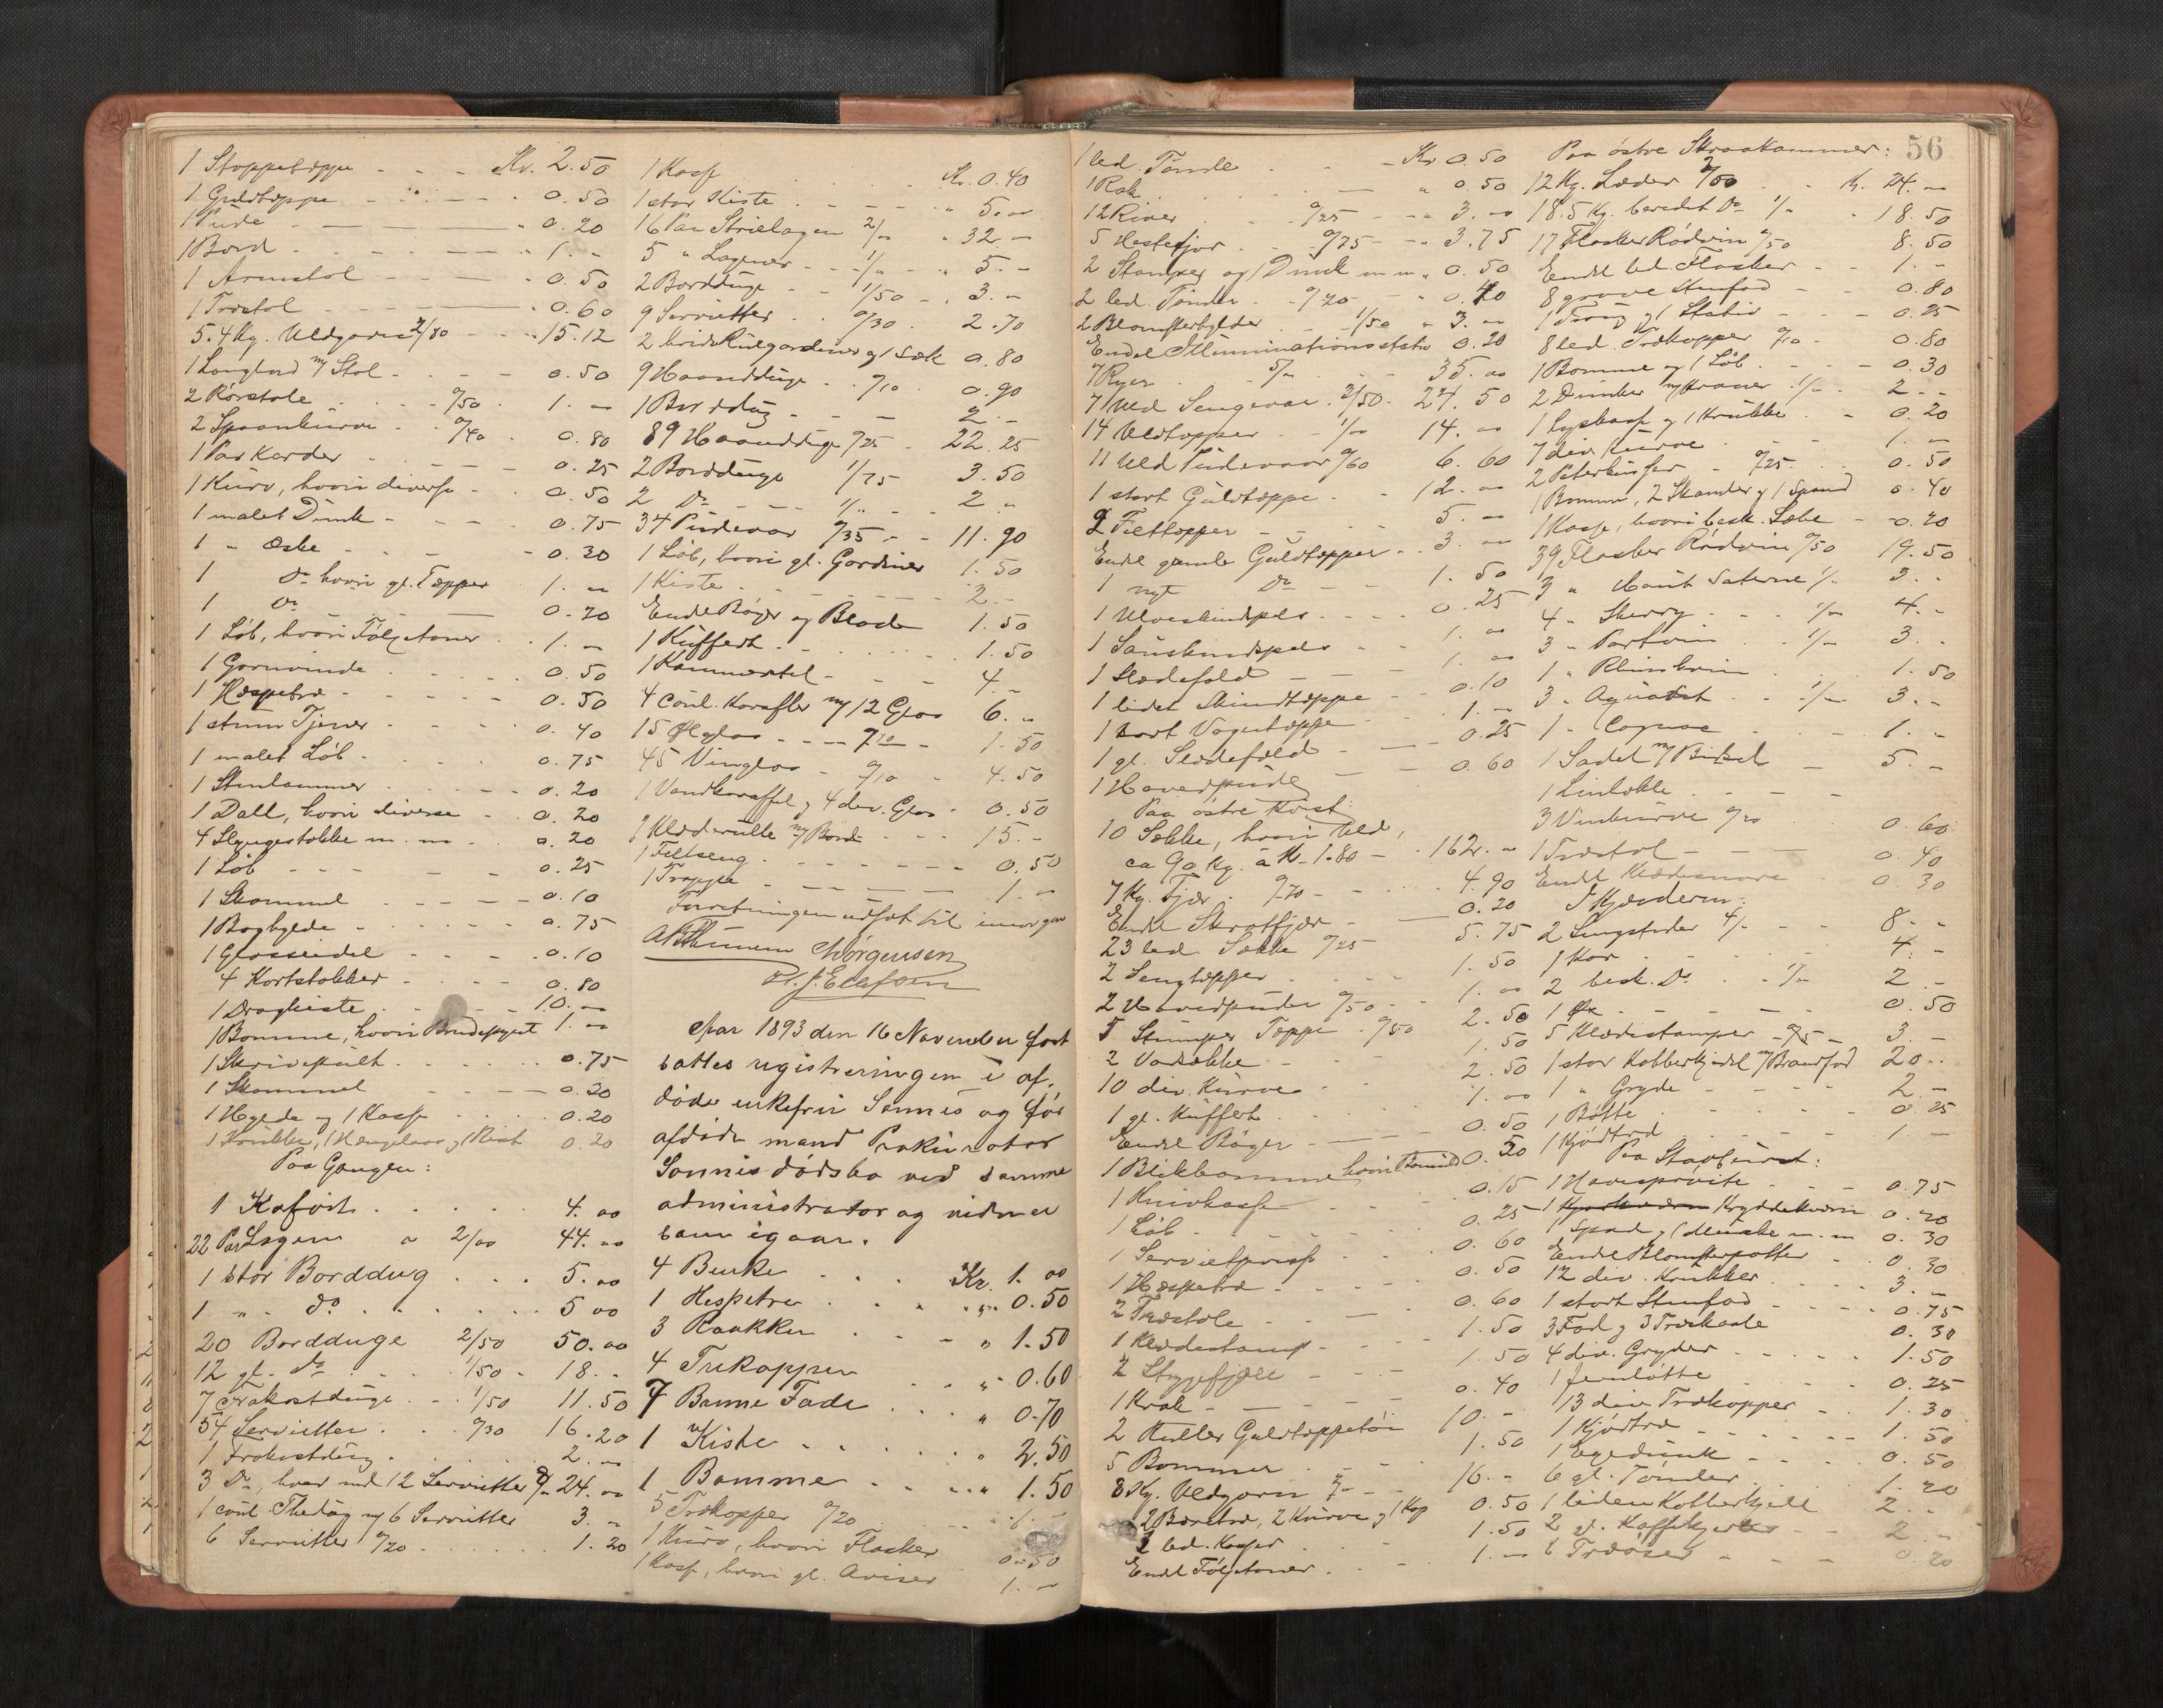 1 Stoppetæppe - - - Kr. 2.50
1 Guldtæppe - - - 0.50
1 Pude - - - 0.20
1 Bord - - - 1. "
1 Armstol - - - 0.50
1 Træstol - - - 0.60
5.4 Kg. Uldgarn 2/80 - - 15.12
1 Langbord m/ Stol - - - 0.50
2 Rørstole - - 0/50 1. "
2 Spaankurve - - 0/40 0.80
1 Par Karder - - - 0.25
1 Kurv, hvori diverse - - 0.50
1 malet Dunk - - - 0.75
1 " Æske - - - 0.30
1 Do hvori gl. Tæpper 1. "
1 Do - - - 0.20
1 Løb, hvori Følgetoner - - 1. "
1 Garnvinde - - - 0.50
1 Hæspetræ - - - 0.50
1 stum Tjener - - - 0.40
1 malet Løb - - - 0.75
1 Stenhammer - - - 0.20
1 Dall, hvori diverse - - 0.20
4 Slyngestokke m. m. - - 0.20
1 Løb - - - 0.25
1 Skammel - - - 0.10
1 Boghylde - - - 0.75
1 - - - 0.10
4 Kortstokker - - - 0.80
1 Dragkiste - - - 10. "
1 Bomme, hvori Brudepynt 1. "
1 Skrivepult - - - 0.75
1 Skammel - - - 0.20
1 Hylde og 1 Kasse - - 0.20
1 Krukke, 1 Hængelaas og 1 0.20
Paa Gangen:
1 Kofort - - - 4. 00
22 Par Lagen a 2/00 44. 00
1 stor Borddug - - - 5. 00
1 " do - - - 5 00
20 Bordduge 2/50 50. 00
12 gl. do - - 1/50 - 18. -
7 Frokostduge - - 1/50 11.50
54 Servietter - - 0/30 16.20
1 Frokostdug - - - 2. "
3 Do, hver med 12 Servietter 8/" 24. 00
1 coul. Thedug m/ 6 Servietter 3. "
6 Servietter 0/20 - - - 1.20
1 Kasse - - - Kr. 0.40
1 stor Kiste - - - 5. 00
16 Par Strielagen 2/" " 32. -
5 " Lagener - - 1/" - 5. -
2 Bordduge - - 1/50 - 3. "
9 Servietter - - 0/30 - 2.70
2 hvide Rulgardiner og 1 Sæk 0.80
9 Haandduge - - 0/10 0.90
1 Borddug - - - 2. -
89 Haandduge 0/25 - 22.25
2 Bordduge 1/75 3.50
2 Do - - - 1/" 2 "
34 Pudevar 0/35 - - 11.90
1 Løb, hvori gl. Gardiner 1.50
1 Kiste - - - 2. -
Endel Bøger og Blade 1.50
1 Kuffert - - - 1.50
1 Kammerstol - - - 4. -
4 coul. Karafler m/ 12 Glas 6. "
15 Ølglas - - - 0/10 - 1.50
45 Vinglas - 0/10 - 4.50
1 Vandkaraffel og 4 div. Glas - 0.50
1 Klæderulle m/ Bord - - - 15. -
1 Feltseng - - - 0.50
1 Trappe - - - 1. "
Forretningen udsat til imorgen
Jørgensen
Aar 1893 den 16 November fort
sattes registreringen i af.
døde enkefru Sonnis og før
afdøde mand Prokurator
Sonnis dødsbo ved samme
administrator og vidner
som igaar.
4 Benke - - - Kr. 1. 00
1 Hespetre - - - " 0.50
3 Raakker - - - " 1.50
4 Trekopper - - - " 0.60
7 Bunne Fade - - - " 0.70
1 Kiste - - - " 2.50
1 Bomme - - - " 1.50
5 Trækopper 0/20 - - 1. -
1 Kurv, hvori Flasker 0.50
1 Kasse, hvori gl. Aviser 1. "
56
1 led. Tønde - - - Kr 0.50
1 Rok - - - " 0.50
12 River - - 0/25 - - 3. "
5 Hestefjør - - 0/75 - - 3.75
2 Stamper og 1 Dunk m m. 0.50
2 led. Tønder - 0/20 - " 0.40
2 Blomsterhylder - - 1/50 " 3. "
Endel Illuminationsstativ 0.20
7 Ryer - - 5/" - - 35. 00
7 Uld Sengevar - 3/50 - 24.50
14 Uldtæpper - - 1/00 14. 00
11 Uld Pudevaar 0/60 6.60
1 stort Guldtæppe - - 12. 00
2 Filttæpper - - - 5. "
Endel gamle Guldtæpper - - 3. "
1 nyt Do - - 1.50
1 Ulveskindpels - - - 0.25
1 Saueskindspels - - 1. 00
1 Slædefald - - 1. 00
1 lidet Skindtæppe - - 0.10
1 sort Vogntæppe - - 1. "
1 gl. Slædefæld - - - 0.25
1 Hovedpude - - 0.60
Paa østre Kvist:
10 Sække, hvori Uld,
ca 90 Kg. à Kr 1.80 - 162. "
7 Kg. Fjær - 0/70 - - - 4.90
Endel Skratfjær - - 0.20
23 led. Sække 0/25 5.75
2 Sengtæpper - - - 1.50
2 Hovedpuder 0/50 - - 1. 00
5 Stumper Tæppe - 0/50 2.50
2 Vadsække - - - 1.50
10 div. Kurve - - 2.50
1 gl. Kuffert - - - 1. 00
Endel Bøger - - - 0.50
1 Blikbomme, hvori 0.50
1 Knivkasse - - - 0.15
1 Løb - - - 0.25
1 Serviettpresse - - - 0.60
1 Hæspetræ - - - 0.50
2 Træstole - - - 0.60
1 Klædestamp - - 1.50
2 Styggfjæle - - - 1.50
1 Krak - - - 0.40
2 Ruller Guldtæppetøi 10. -
5 Bommer - - - 1.50
8 Kg. Uldgarn 2/" - - 16. "
2 Bæretræ, 2 Kurve og 1 Kop 0.50
2 led. Kasser - - 1.50
Endel Følgetoner - - 1. "
Paa østre Skraakammer:
12 Kg. Læder 2/00 - - Kr. 24. "
18.5 Kg. beredt Do 1/" - 18.50
17 Flasker Rødvin 0/50 8.50
Endel led. Flasker - - 1. "
8 grove Stenfad - - 0.80
1 Traug og 1 Stativ - - 0.25
8 led. Trækopper 0/10 - 0.80
1 Bomme og 1 Løb - - - 0.30
2 Dunker m/ Kraner 1/" - 2. -
1 Lyskasse og 1 Krukke - - 0.20
7 div. Kurve - - - 1. "
2 Peterbusser - 0/25 - - 0.50
1 Bomme, 2 Skander og 1 Spand 0.40
1 Kasse, hvori besk. Sæbe - 0.20
39 Flasker Rødvin 0/50 19.50
3 " Haut Sauterne 1/" 3. -
4 " Sherry - - 1/00 4. -
3 " Portvin - - 1/" 3. -
1 " Rhinskvin - - 1.50
3 " Aquavit - - 1/" 3. -
1 " Cognac - - - 1. "
1 Sadel m/ Bidsel - 5. -
1 Linhekle - - -
3 Vinkurve 0/20 - - 0.60
1 Træstol - - - 0.40
Endel Klædesnore - 0.30
I Kjælderen:
2 Sengsteder 4/" - - 8. -
1 Kar - - - 4. -
2 besk. Do - - 1/" 2. -
1 Øx - - - 0.50
5 Klædestamper - 0/75 - 3. -
1 stor Kobberkjedel m/ Brandfod 20. -
1 " Gryde - - - 2. -
1 Bøtte - - - 0.25
1 Kjødfad - - - 1 -
Paa Stabburet:
1 Havesprøite - - - 0.75
1 Kryddekværn 0.20
1 Spad og 1 m. m 0.30
Endel Blomsterpotter - 0.30
12 div. Krukker - - - 3. -
1 stort Stenfad - - - 0.75
3 Fad og 3 Træskaale 0.30
4 div. Gryder - - - 1.50
1 Jernbøtte - - - 0.25
13 div. Trækopper - - 1.30
1 Kjødtræ - - - 1.50
1 Eggedunk - - - 0.50
6 gl. Tønder - - - 1.20
1 liden Kobberkjell 2. -
2 gl. Kaffekjedler - - 2. -
2 Træøser - - - 0.20